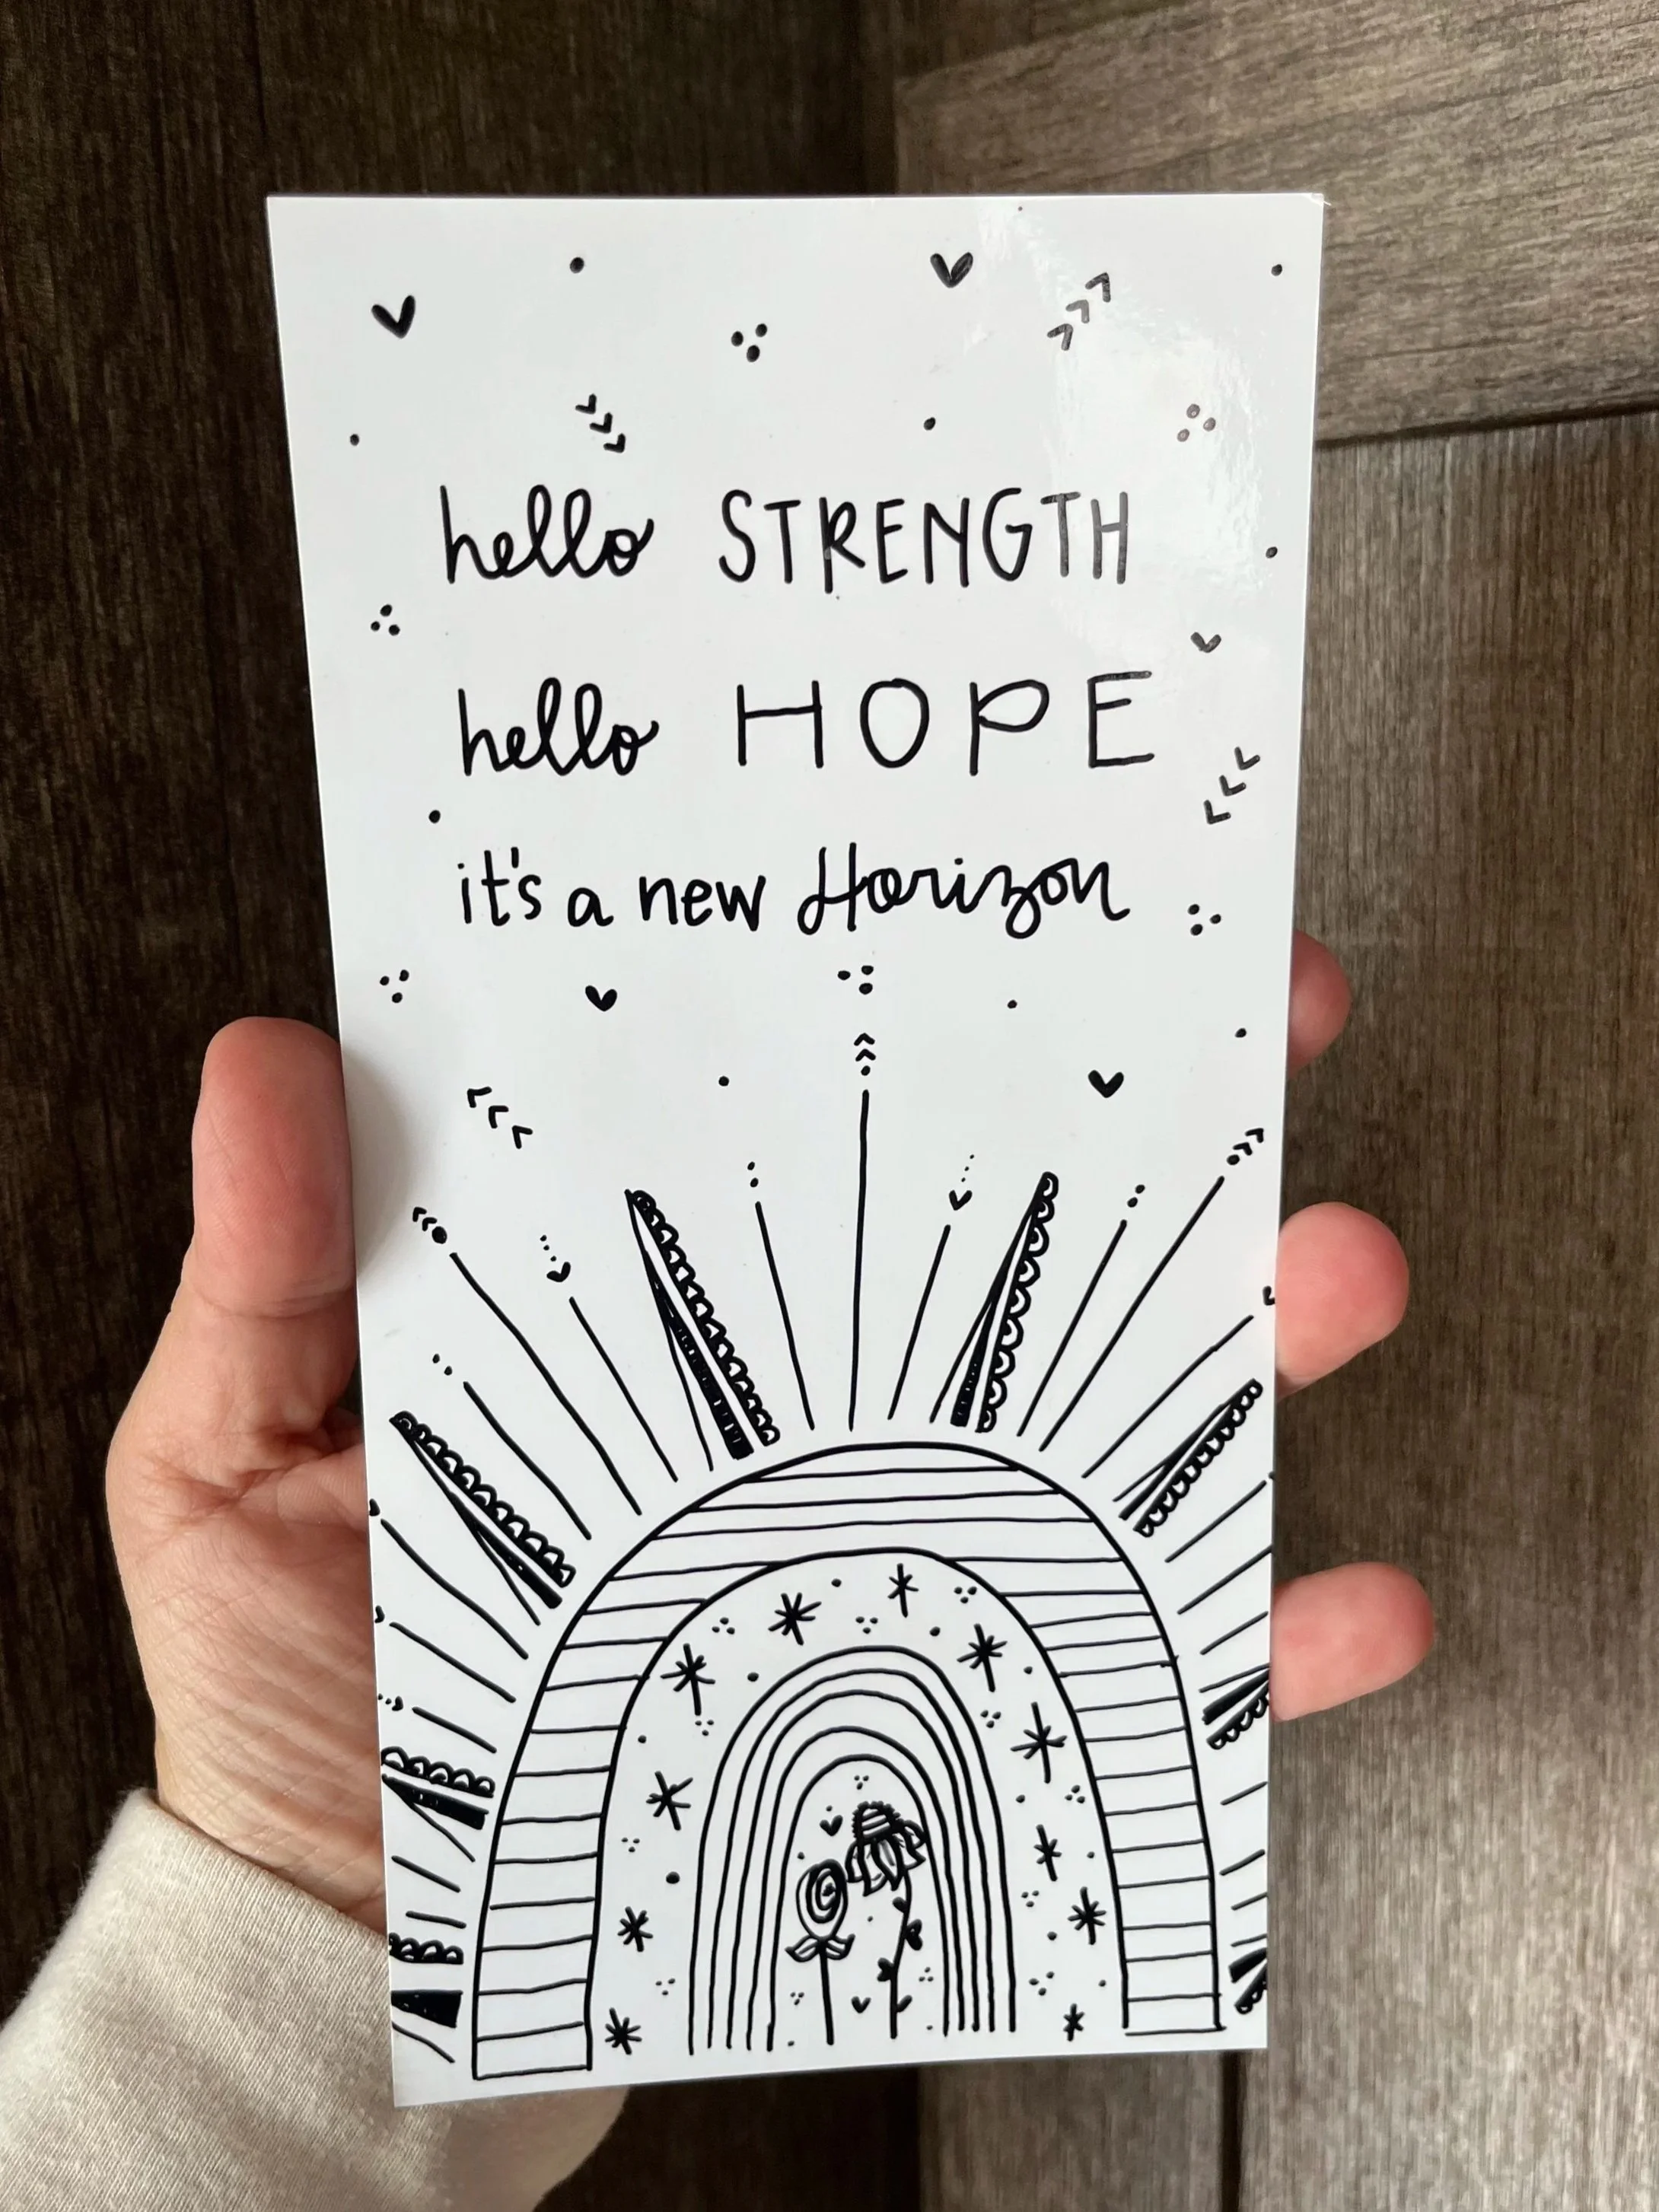 hello STRENGTH
hello HOPE
it's a new Horizon